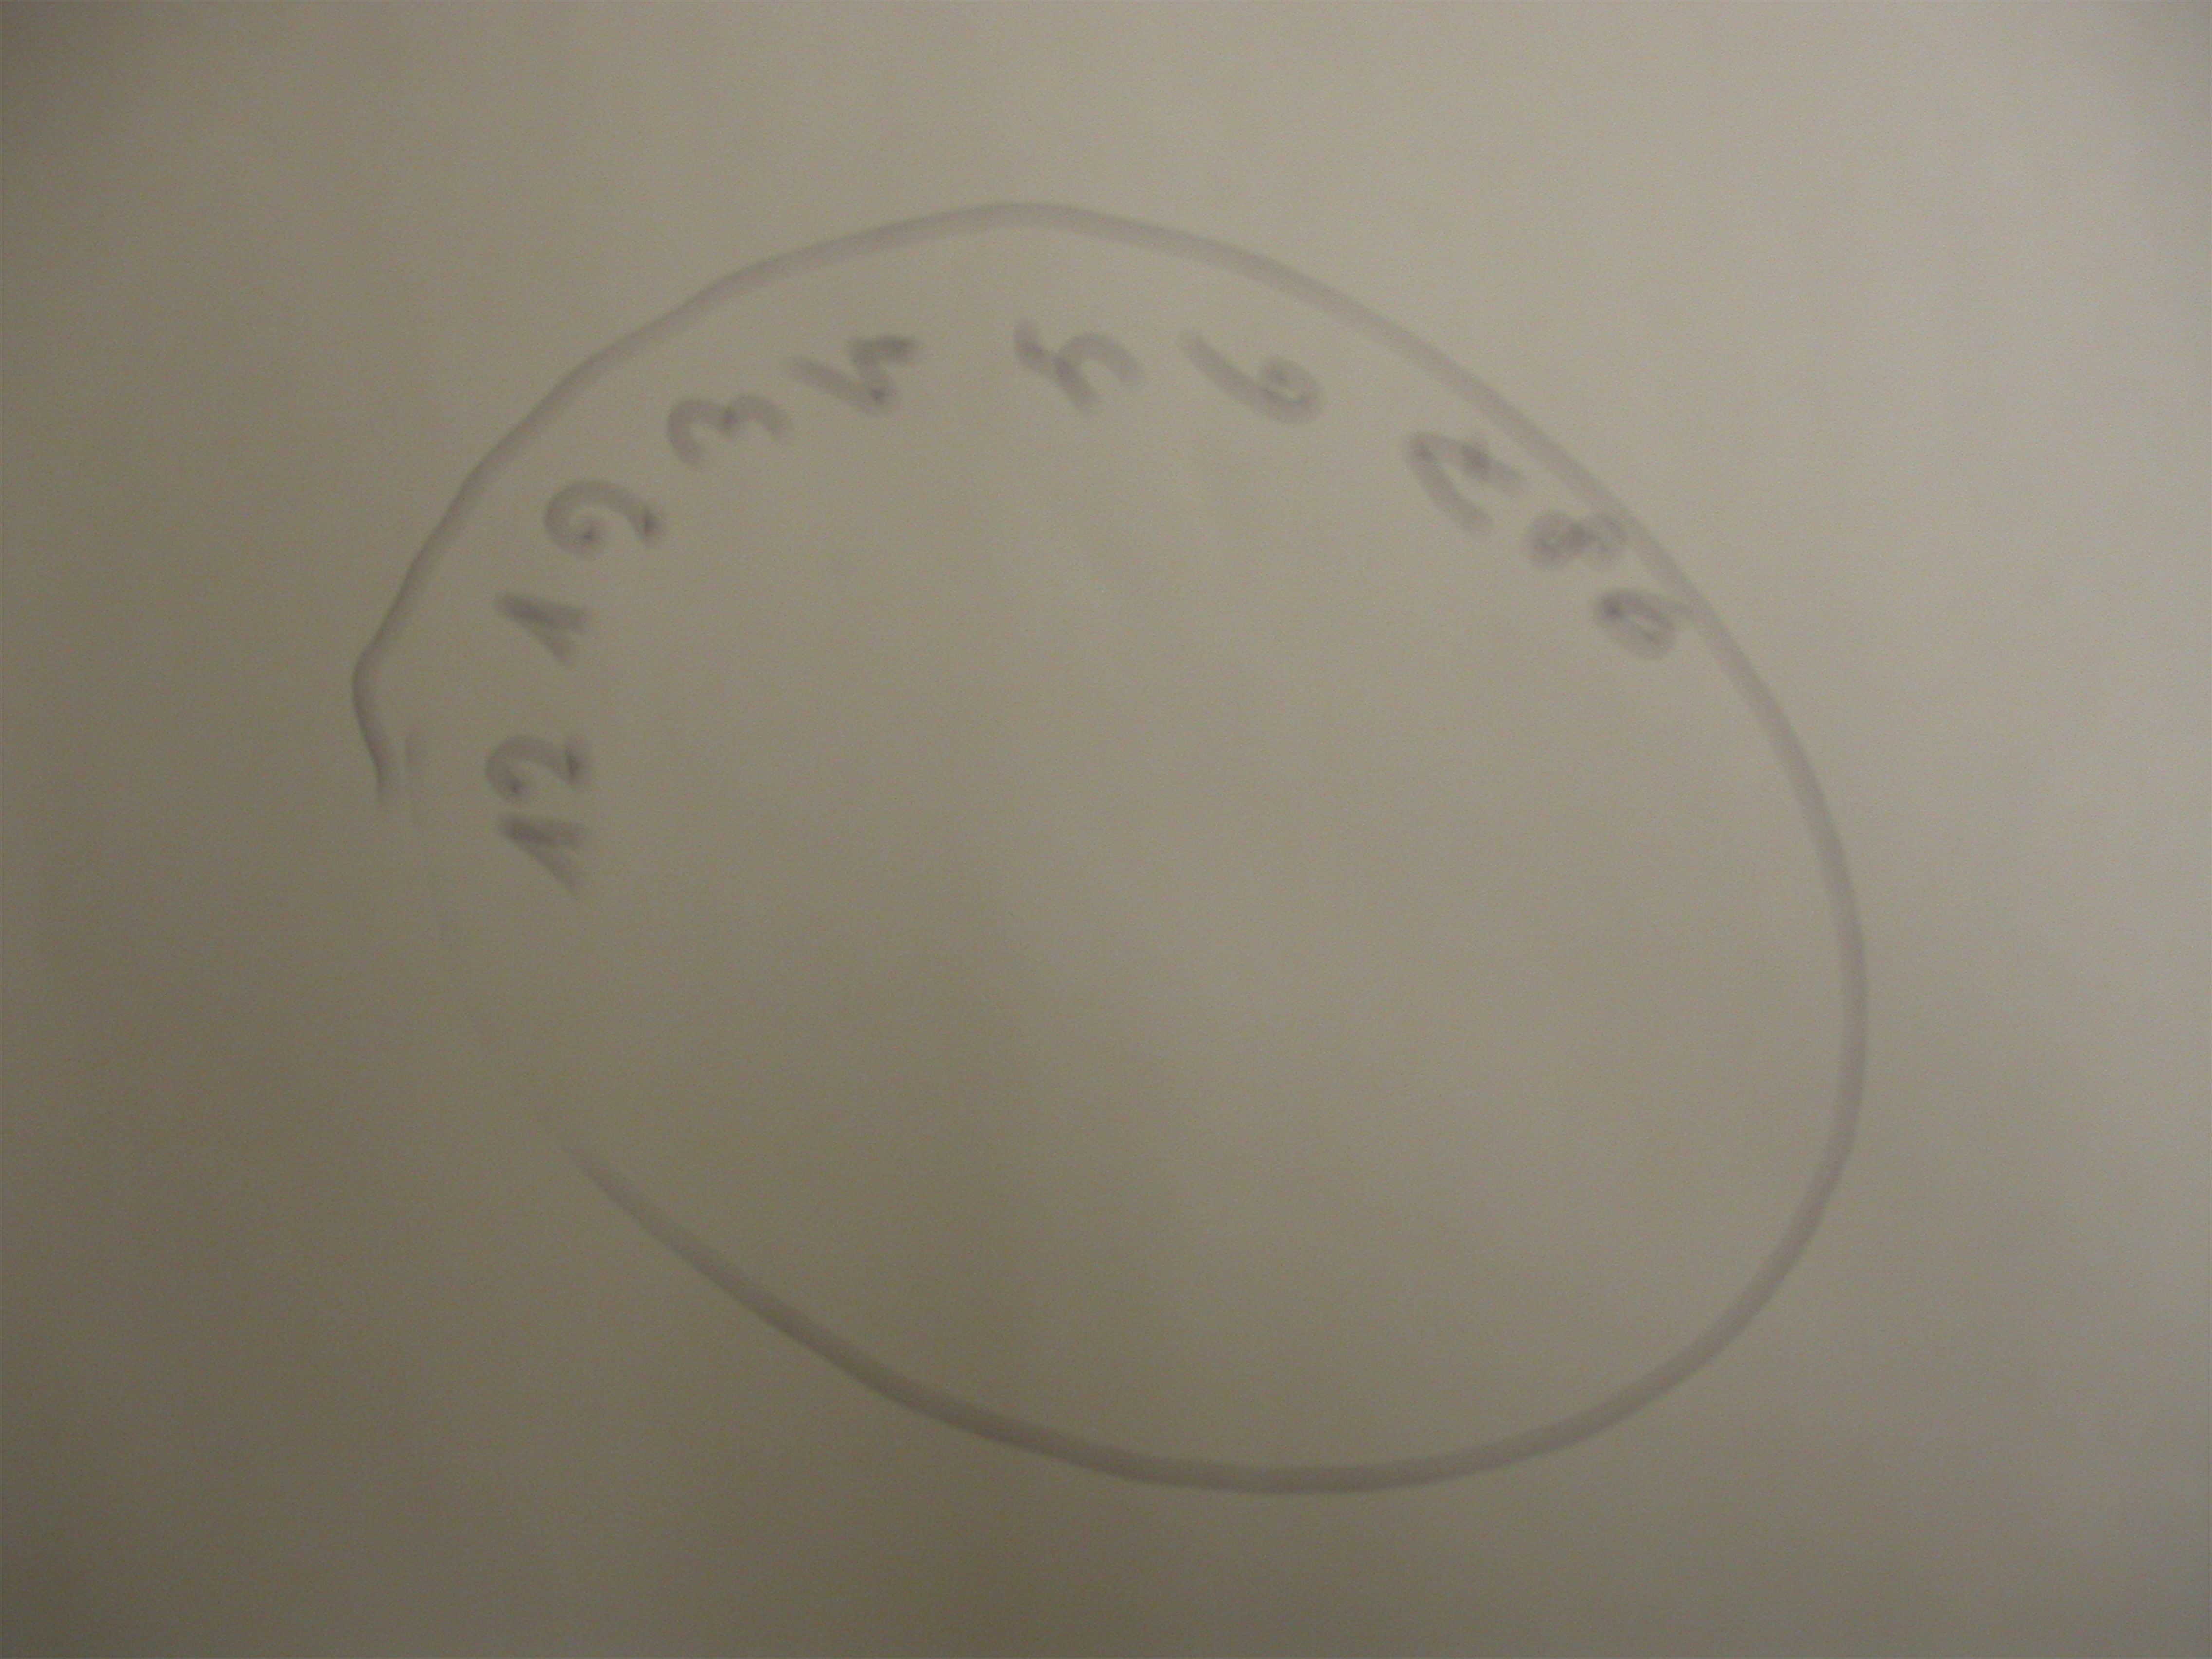 12
1
2
3
4
5
6
7
8
9